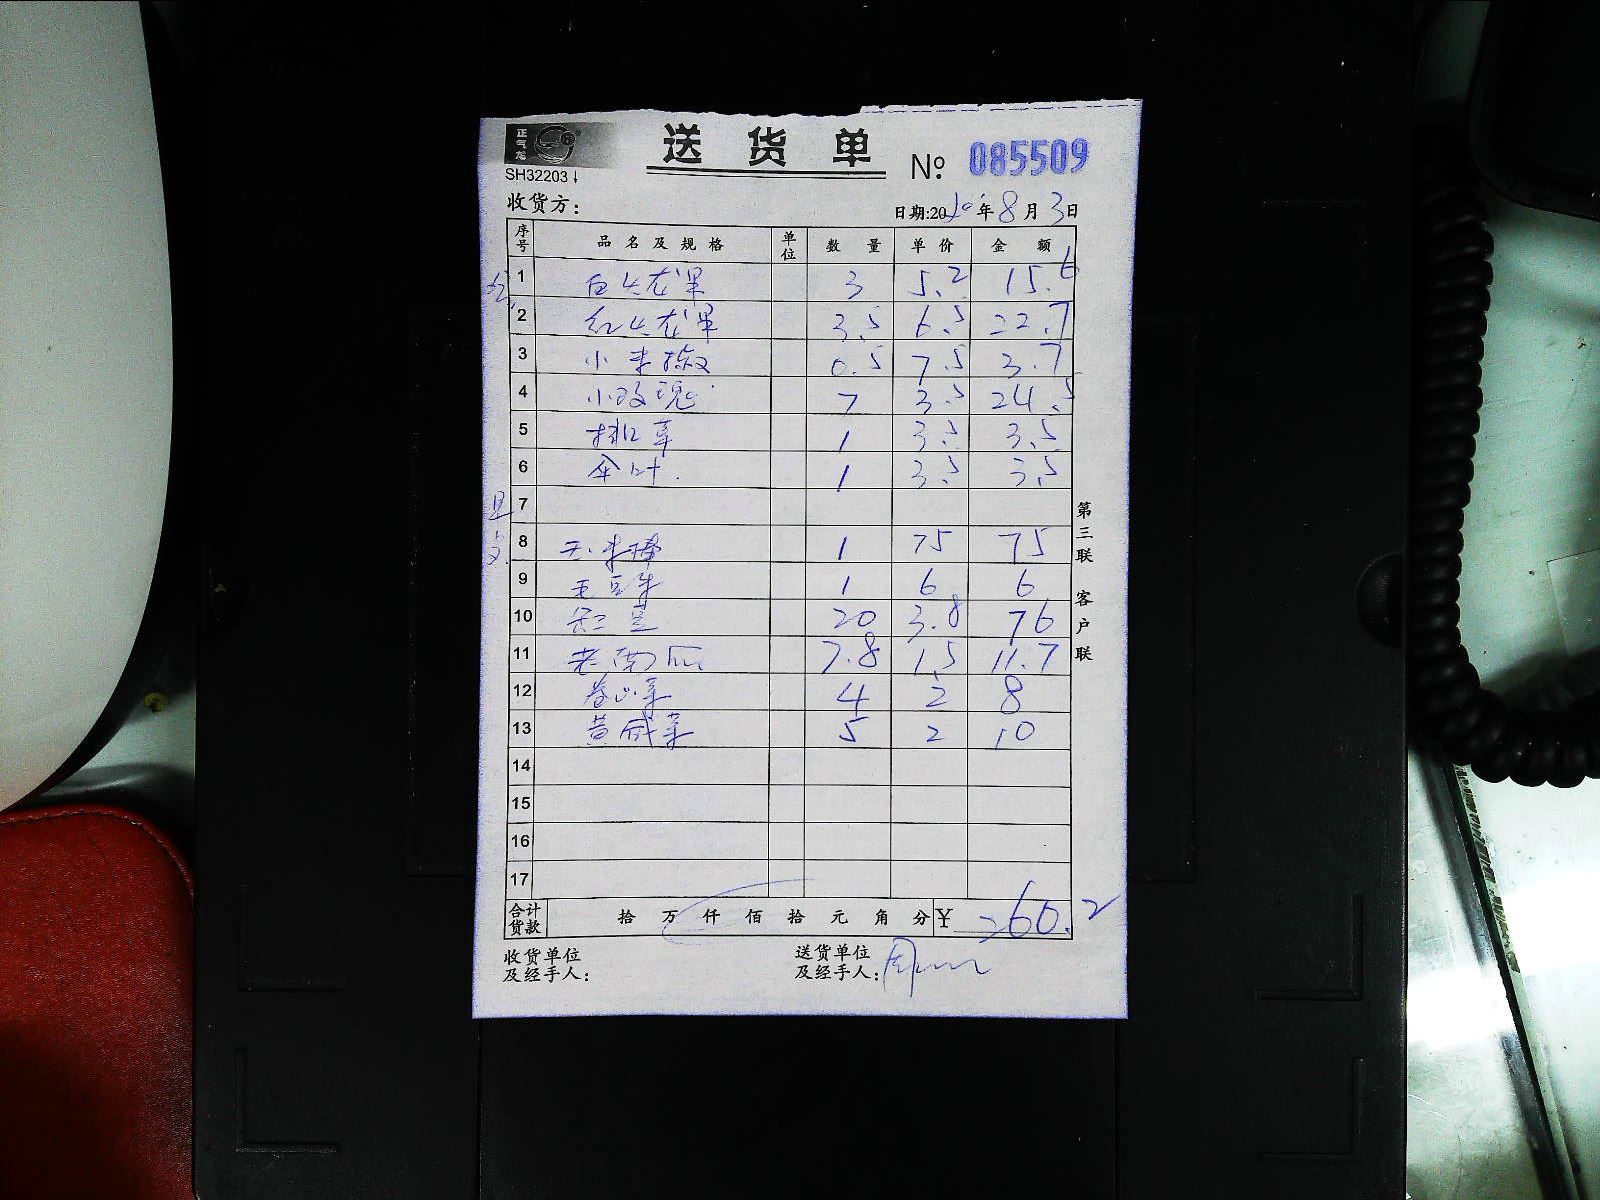 正气龙
SH32203
送货单
№ 085509
收货方：
日期:2020年8月3日
序号 品名及规格 单位 数量 单价 金额
1 白火龙果 3 5.2 15.6
2 红火龙果 3.5 6.5 22.7
3 小米椒 0.5 7.5 3.7
4 小玫瑰 7 3.5 24.5
5 排草 1 3.5 3.5
6 伞叶 1 3.5 3.5
7
8 玉米棒 1 75 75
9 毛豆米 1 6 6
10 豆 20 3.8 76
11 老南瓜 7.8 1.5 11.7
12 卷心菜 4 2 8
13 黄咸菜 5 2 10
14
15
16
17
合计货款 拾 万 仟 佰 拾 元 角 分 ¥ 260.2
收货单位及经手人：
送货单位及经手人： 周
第三联 客户联